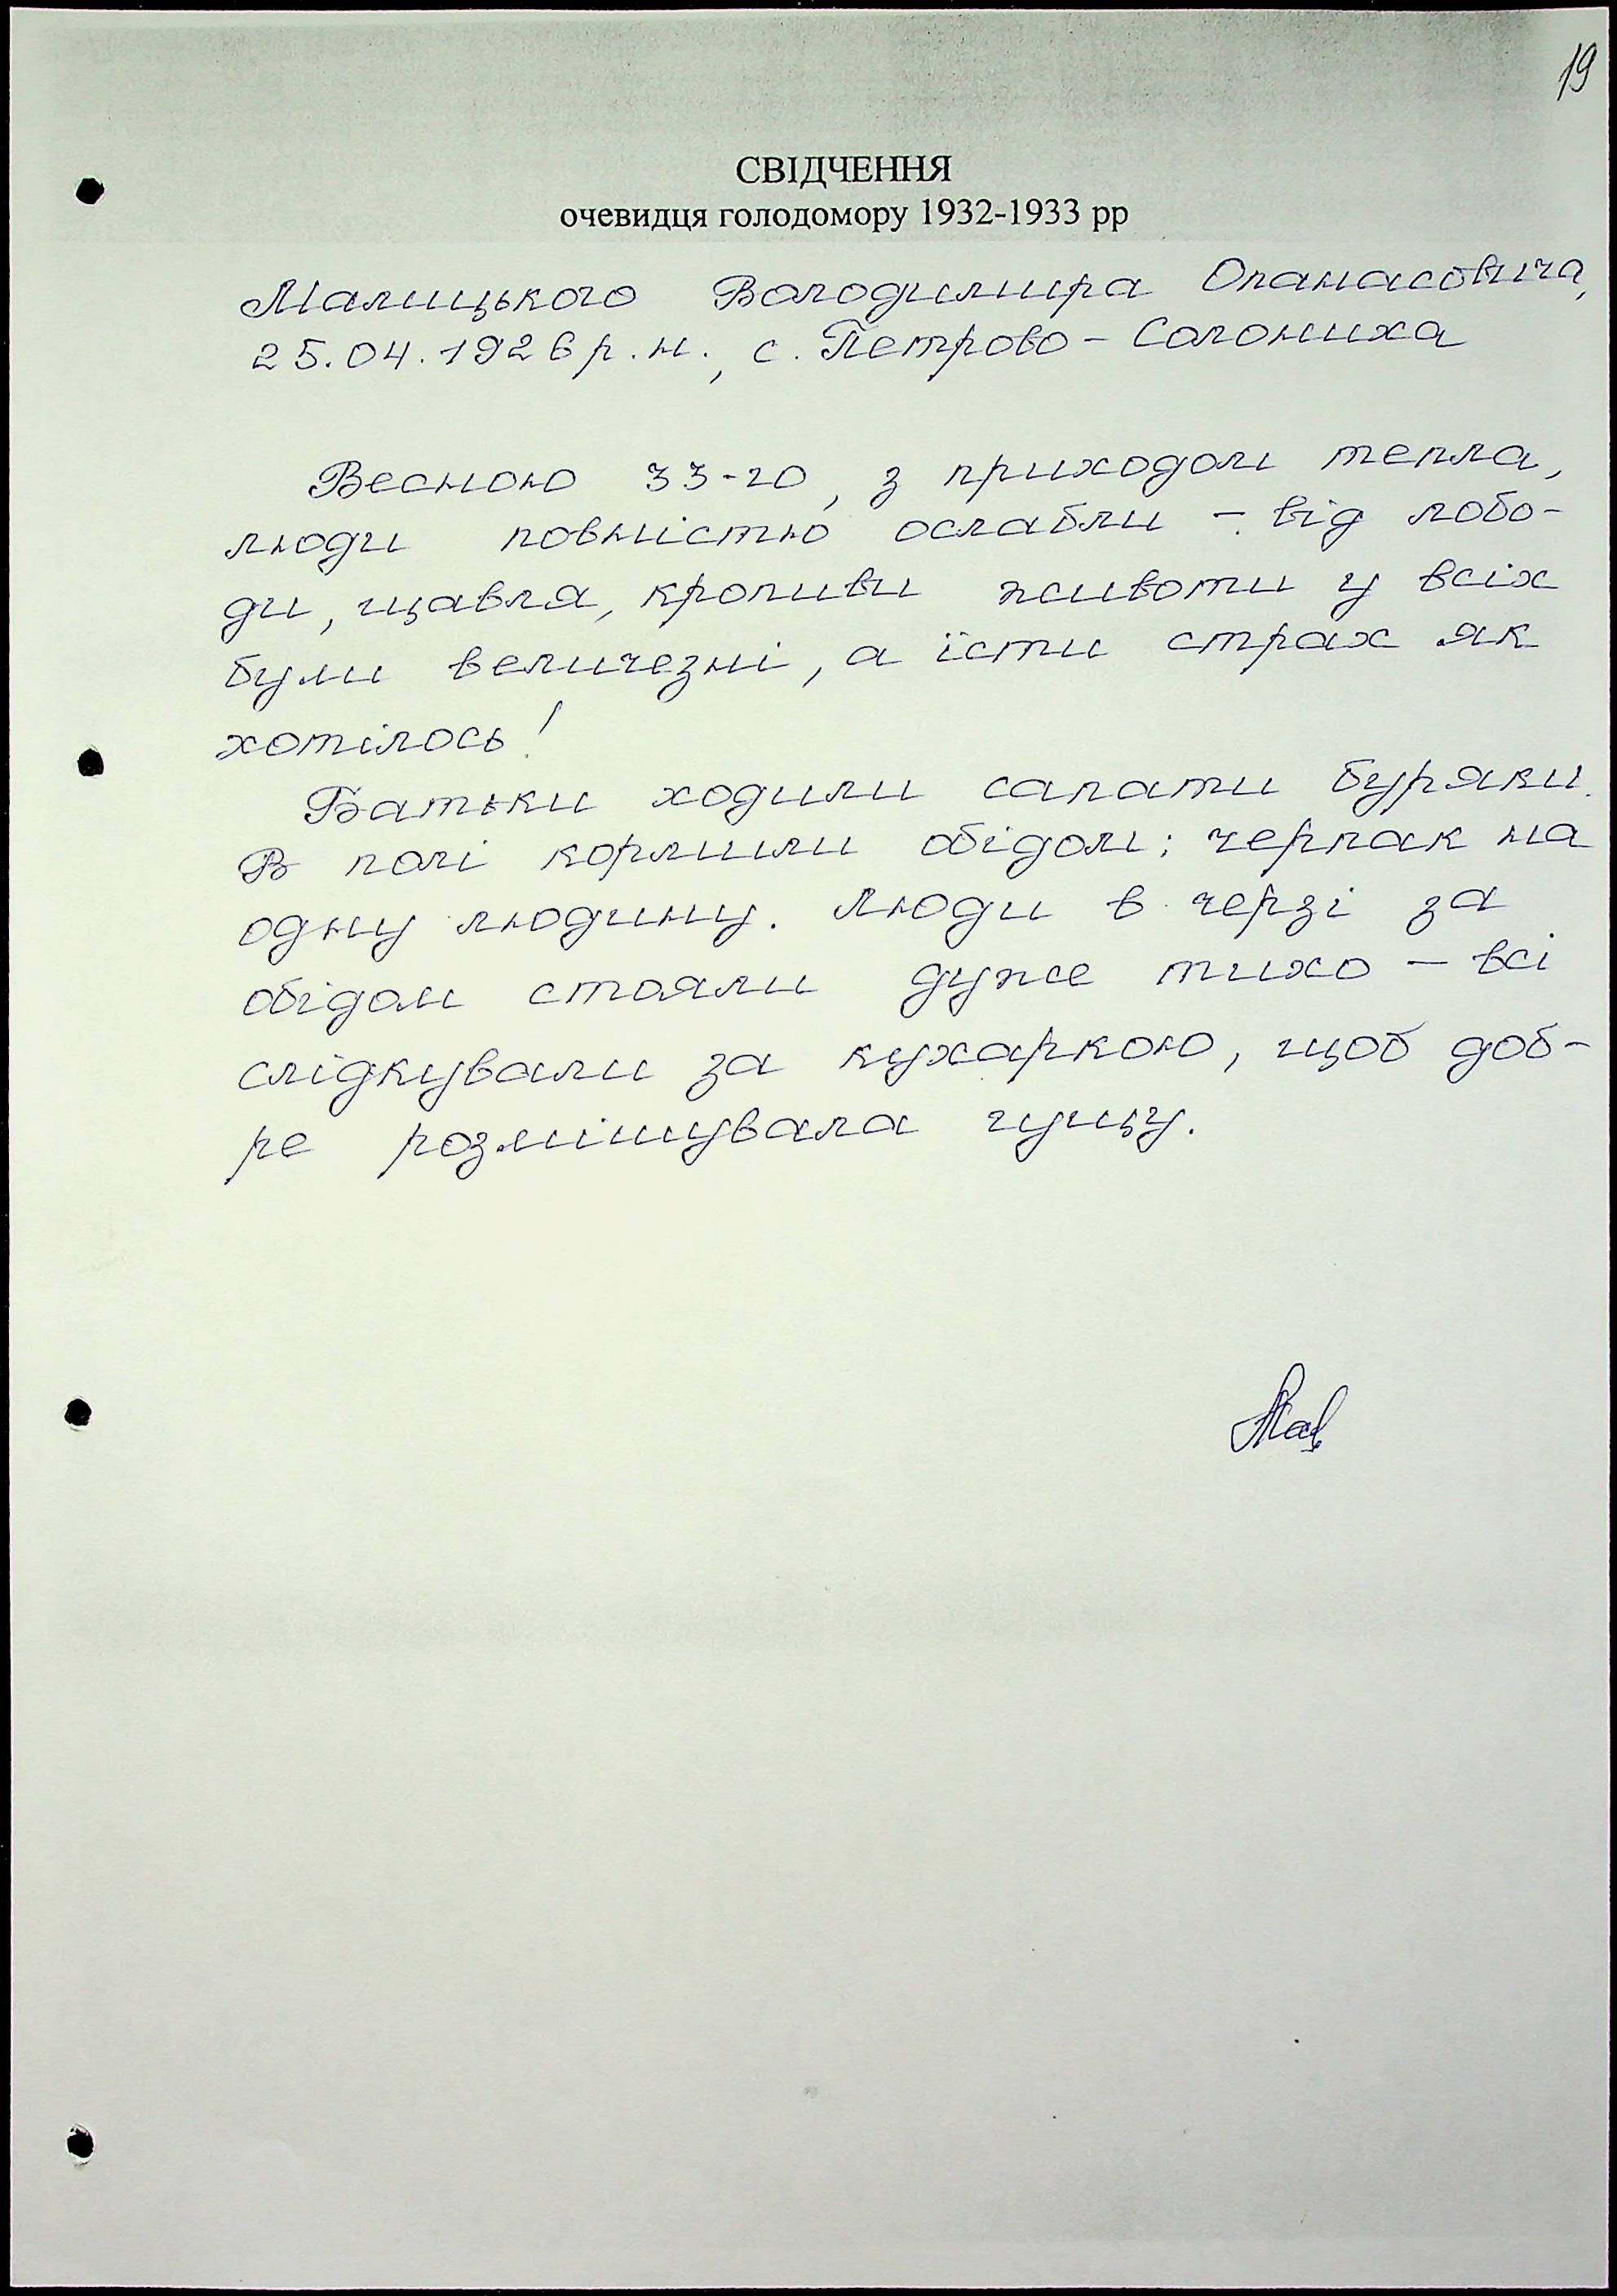 19
СВІДЧЕННЯ
очевидця голодомору 1932-1933 рр
Малицького Володимира Опанасовича,
25.04.1926 р.н., с. Петрово-Солониха
Весною 33-го, з приходом тепла,
люди повністю ослабли - від лобо-
ди, щавля, кропиви животи у всіх
були величезні, а їсти страх як
хотілось!
Батьки ходили сапати буряки.
В полі кормили обідом; черпак на
одну людину. Люди в черзі за
обідом стояли дуже тихо - всі
слідкували за кухаркою, щоб доб-
ре розмішувала гущу.